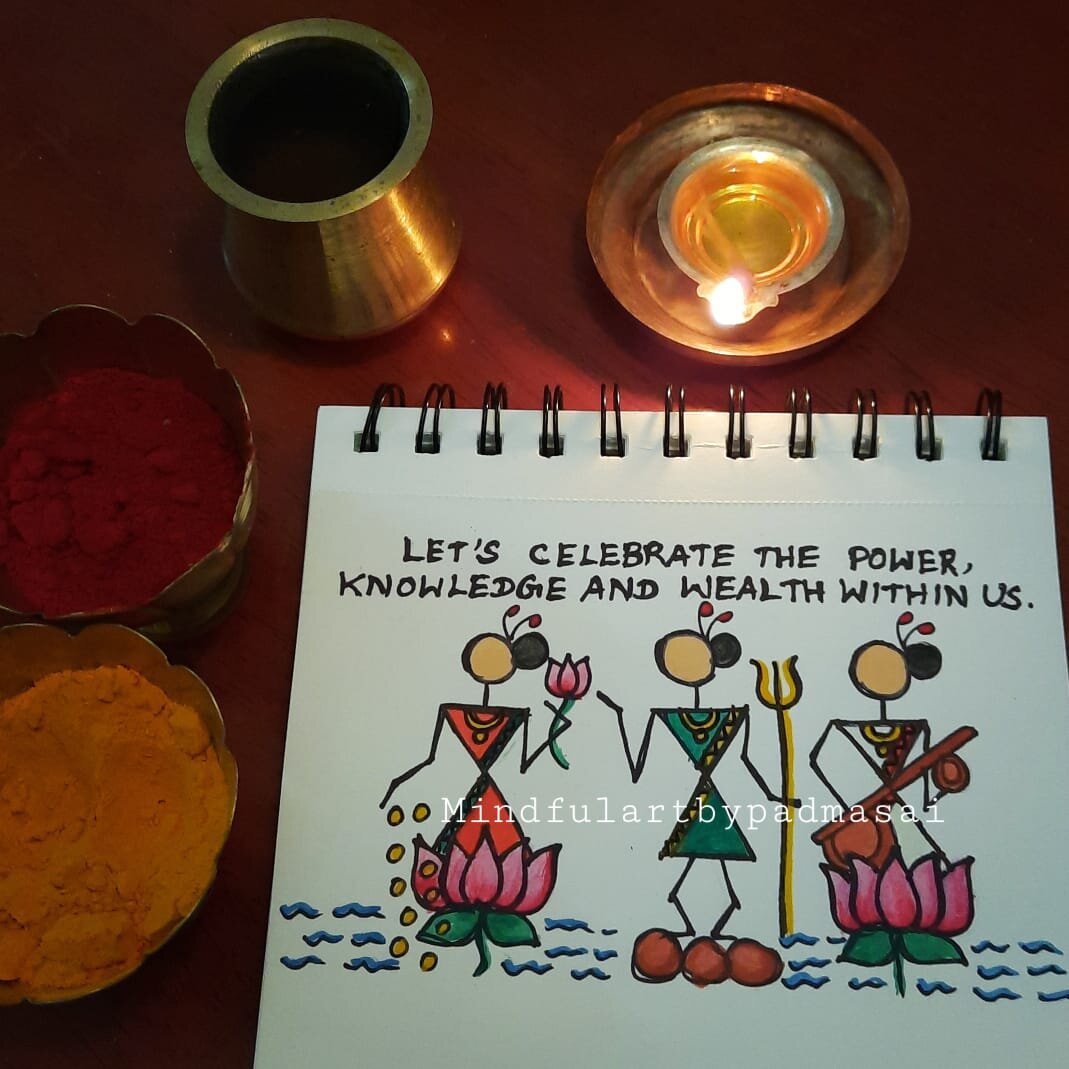 LET'S CELEBRATE THE POWER,
KNOWLEDGE AND WEALTH WITHIN US.
Mindfulartbypadmasai